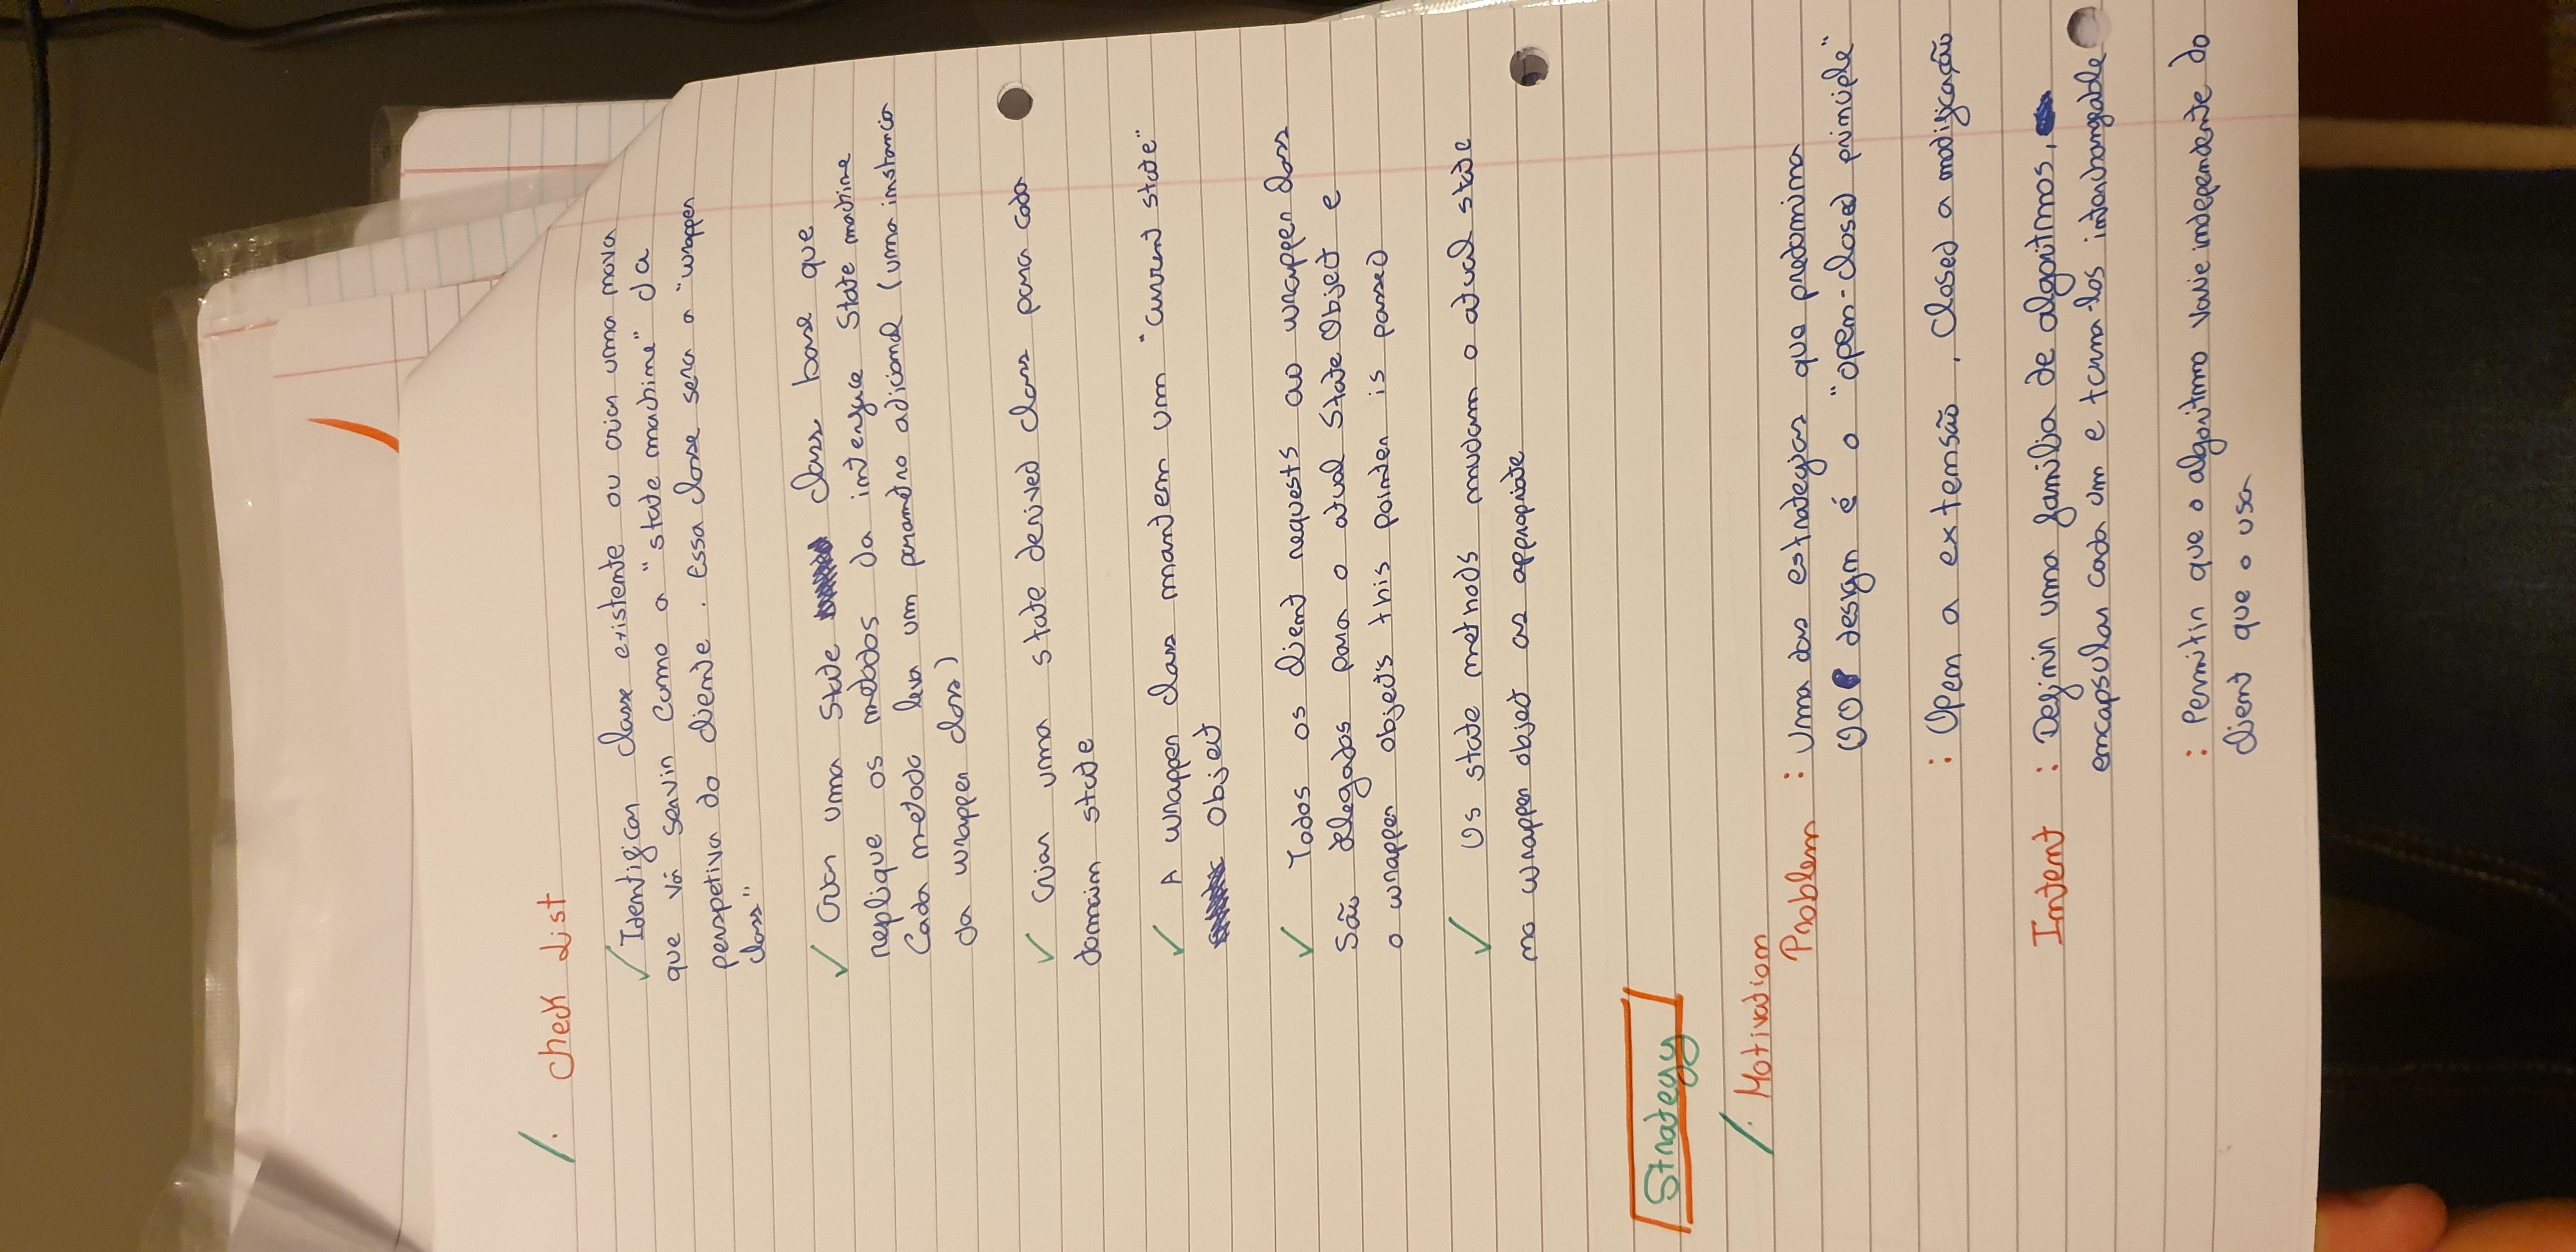 /. Check List
✓ Identificar classe existente ou criar uma nova
que vá servir como a "state machine" da
perspetiva do cliente. Essa classe sera a "wrapper
class"
✓ Criar uma State class base que
replique os metodos da interface State machine
Cada metodo leva um parametro adicional (uma instancia
da wrapper class)
✓ Criar uma state derived class para cada
domain state
✓ A wrapper class mantem um "current state"
object
✓ Todos os client requests ao wrapper class
São delegados para o atual State Object e
o wrapper object's this pointer is passed
✓ Os state methods mudam o atual state
no wrapper object as appropriate
Strategy
/. Motivation
Problem : Uma das estrategias que predomina
OO design é o "open-closed principle"
: Open a extensão, Closed a modificação
Intent : Definir uma familia de algoritmos,
encapsular cada um e torna-los interchangeable
: Permitir que o algoritmo varie independente do
client que o usa